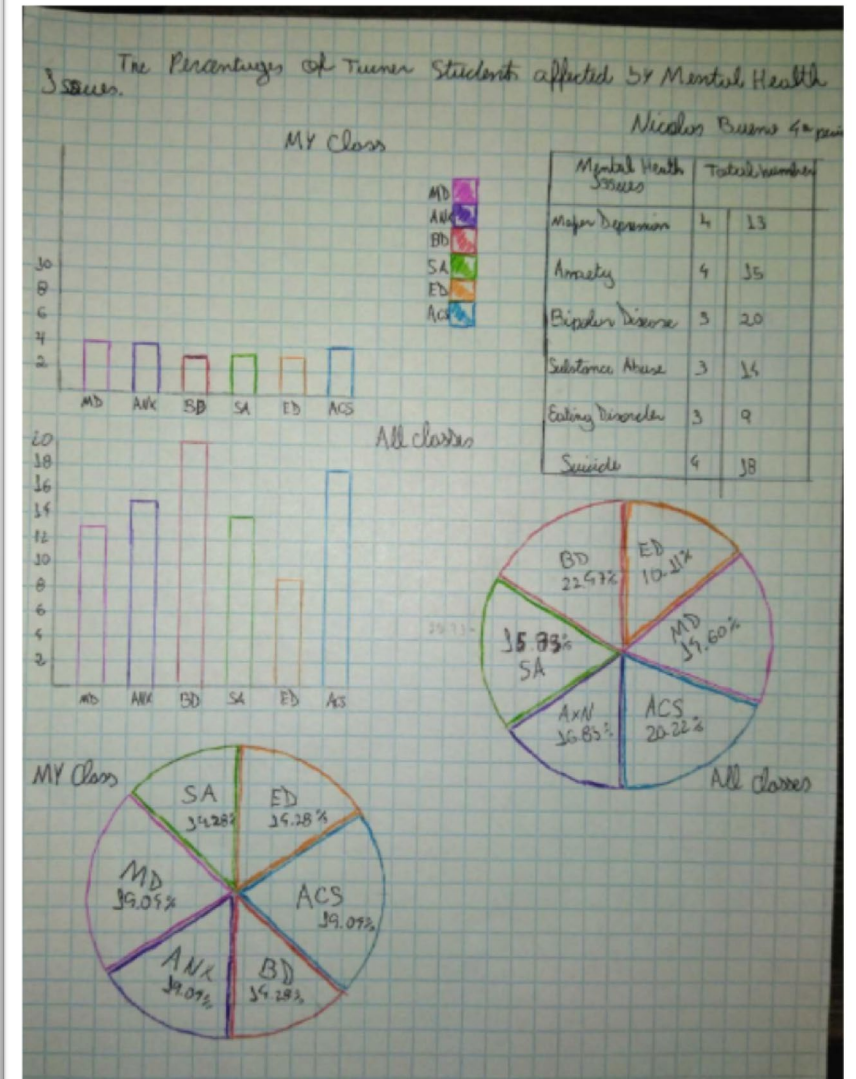 The Percentuges of Turner Students affected by Mental Health
Issues.
Nicolas Bueno 4th
MY Class
MD
ANX
BD
SA
ED
ACS
10
8
6
4
2
MD ANX BD SA ED ACS
Mental Health Issues Total number
Major Depression 4 13
Anxiety 4 15
Bipolar Disease 3 20
Substance Abuse 3 14
Eating Disorder 3 9
Suicide 4 18
All classes
20
18
16
14
12
10
8
6
4
2
MD ANX BD SA ED ACS
BD
22.47%
ED
10.11%
MD
14.60%
ACS
20.22%
AxN
16.85%
SA
All classes
MY Class
SA
14.28%
ED
14.28%
ACS
19.04%
BD
14.28%
ANX
19.04%
MD
19.04%